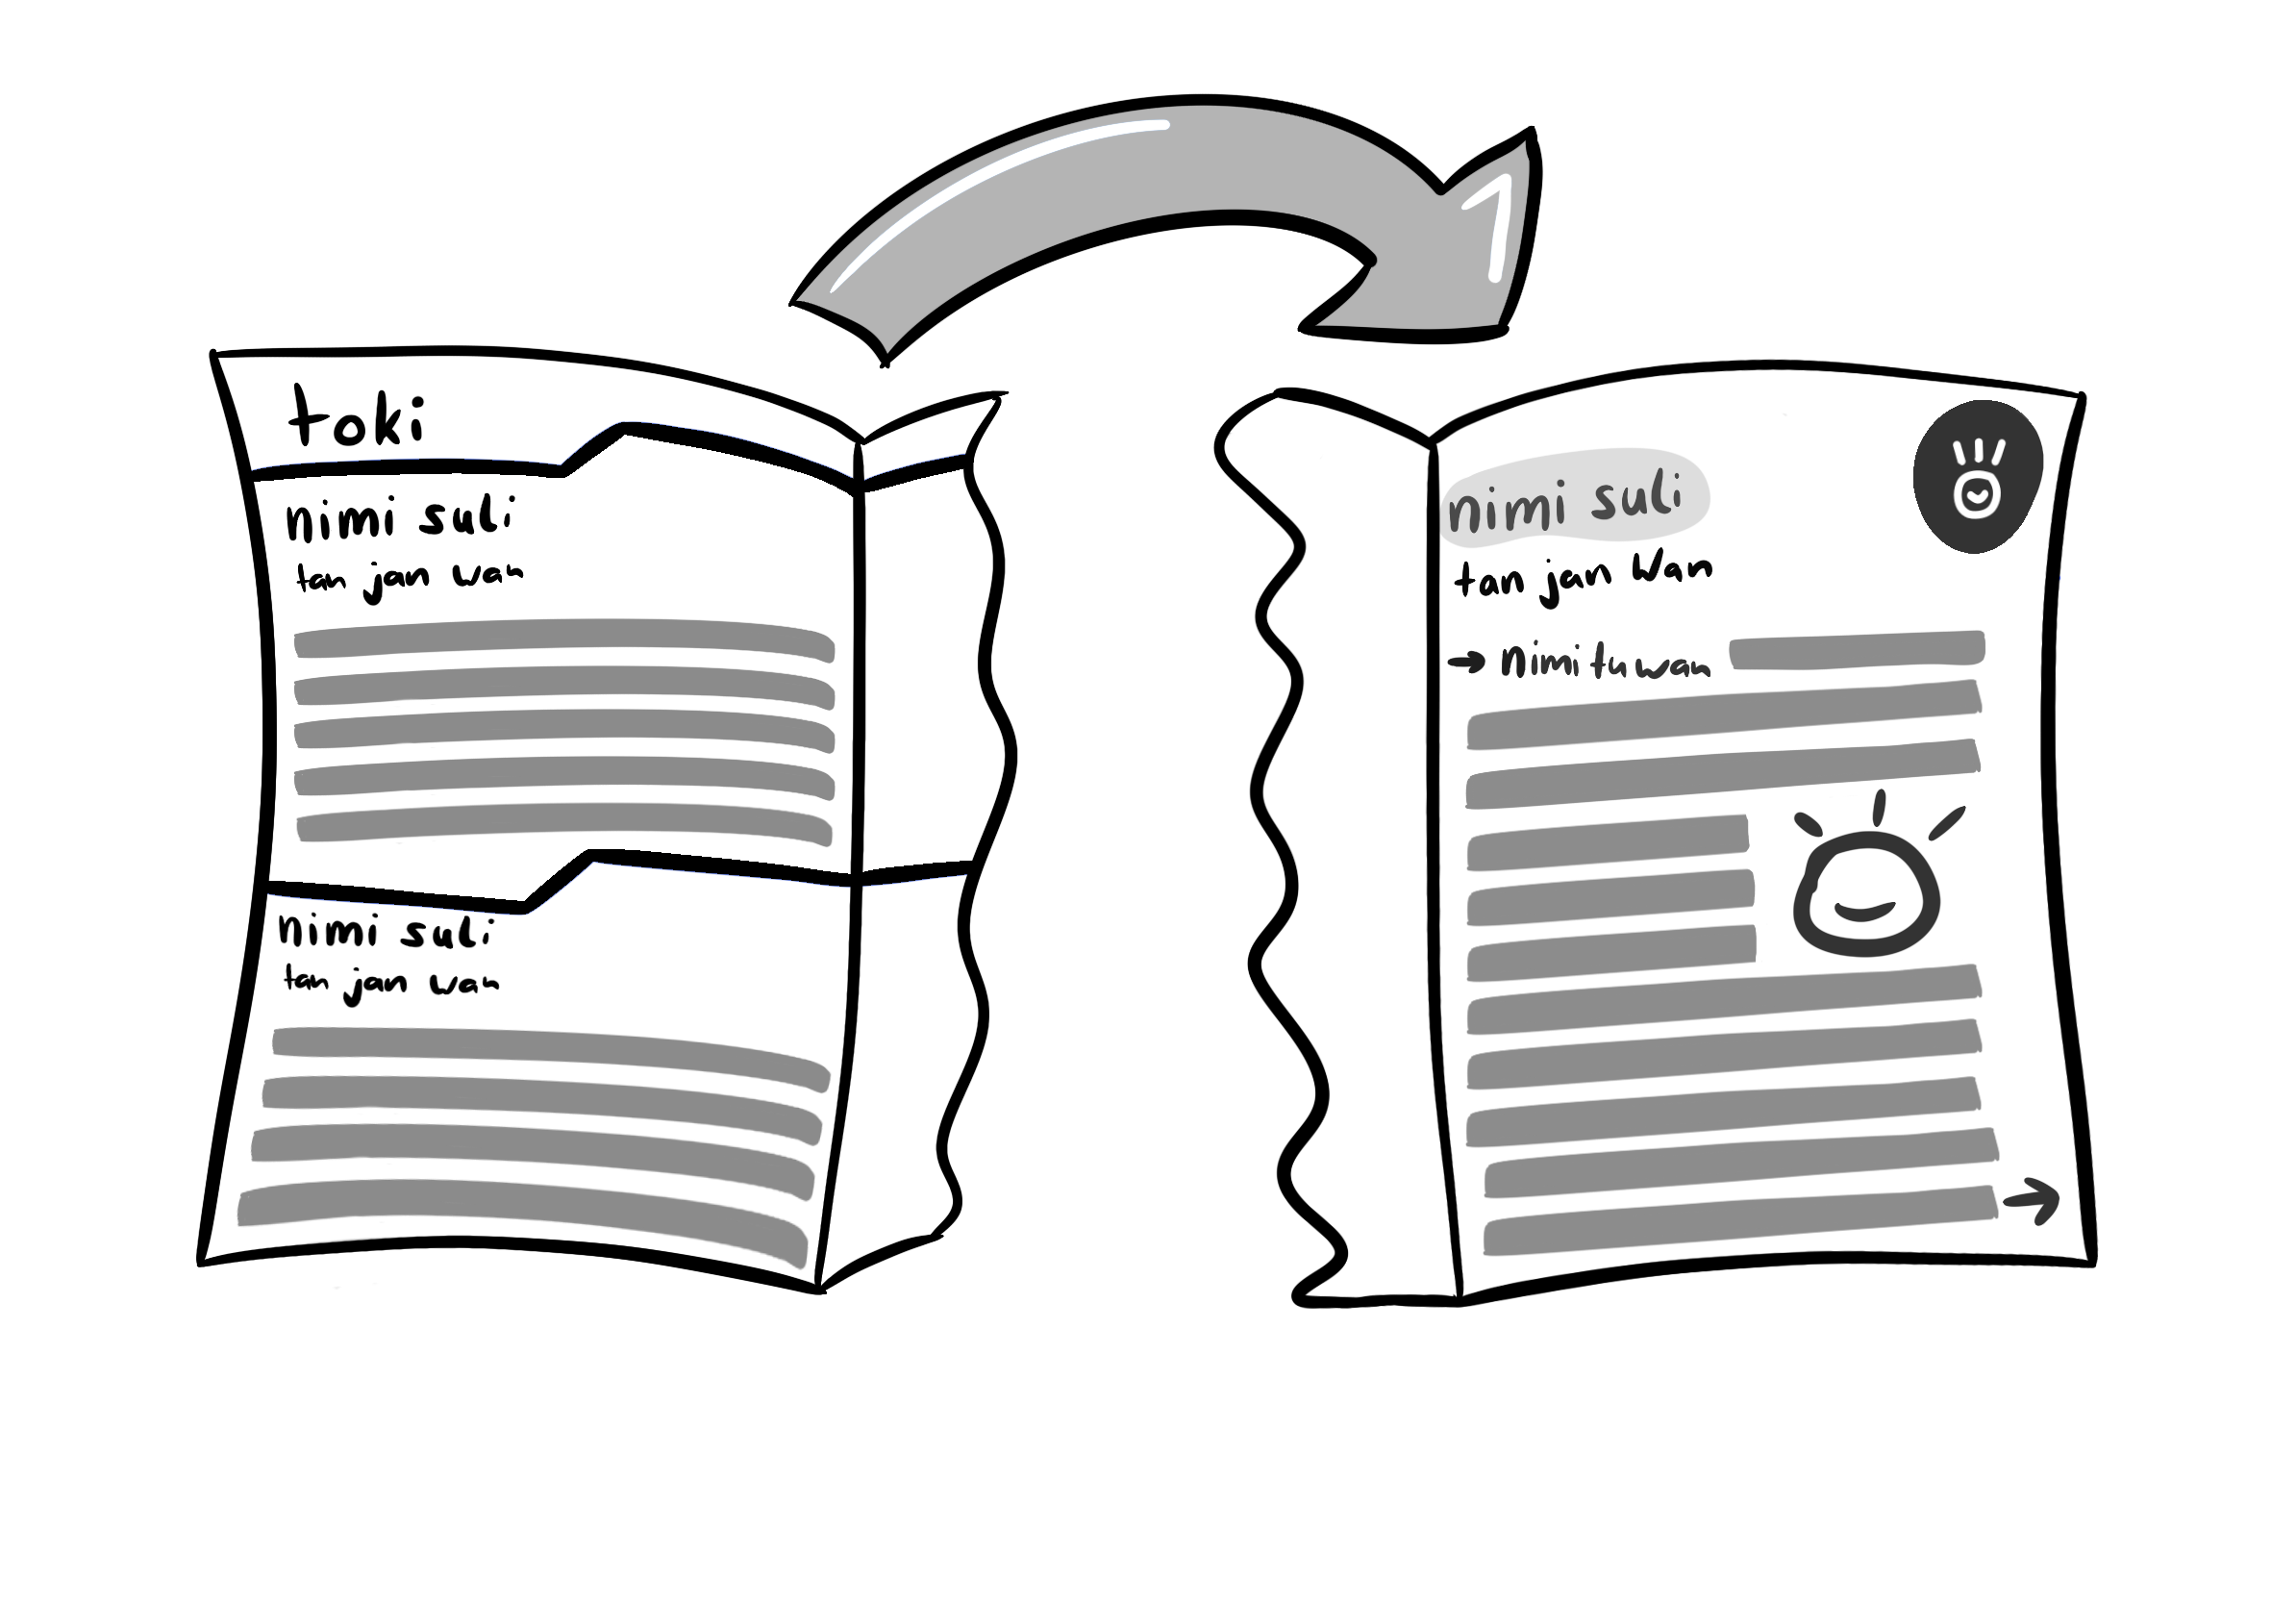 toki
nimi suli
tan jan wan
nimi suli
tan jan wan
nimi suli
tan jan wan
→ nimi tu wan